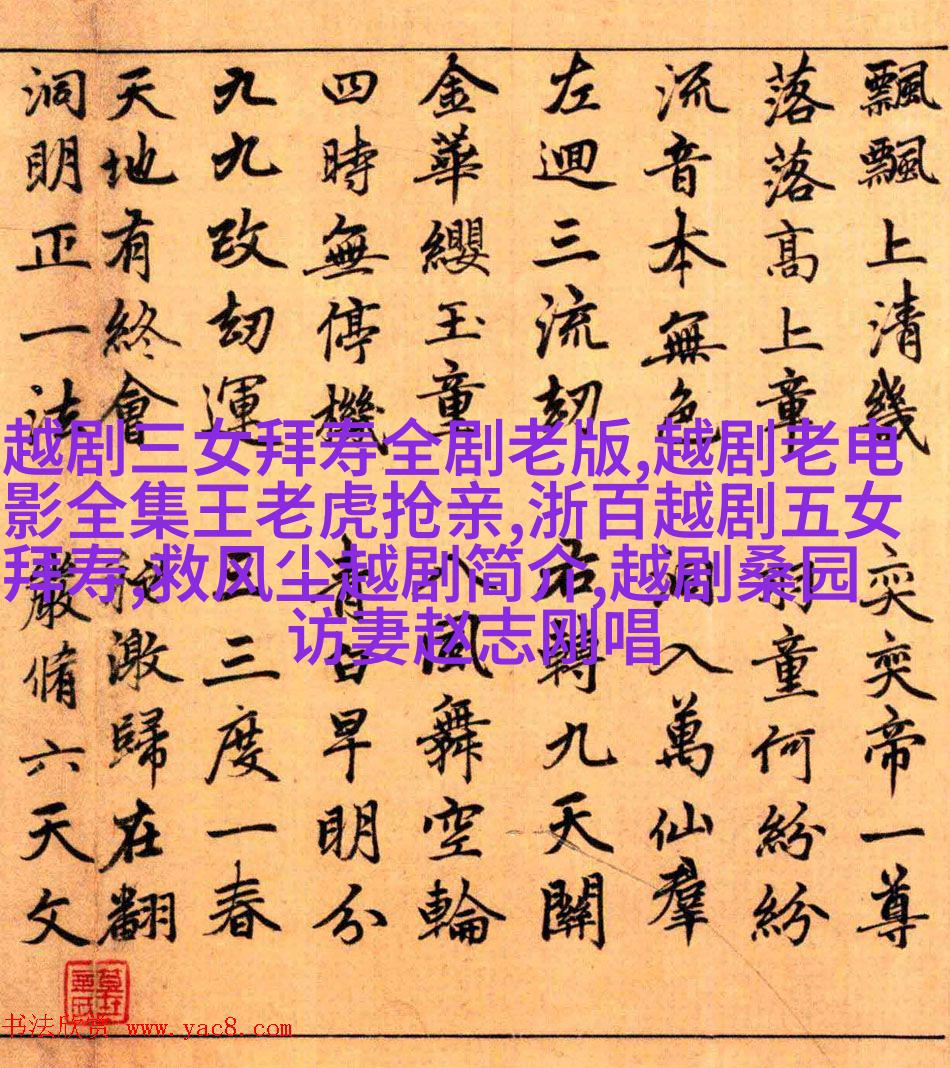 飄飄上清幾 奕奕帝一尊
落落高上童 童何紛紛
流音本無色 入萬仙羣
左迴三流刼 右轉九天關
金華纓玉童 八風舞空輪
四時無停機 早明分
九九改刼運 三三度一春
天地有終會 激歸在翻
洞明正一法 嚴脩六天文
越剧三女拜寿全剧老版,越剧老电
影全集王老虎抢亲,浙百越剧五女
拜寿,救风尘越剧简介,越剧桑园
访妻赵志刚唱
书法欣赏 www.yac8.com